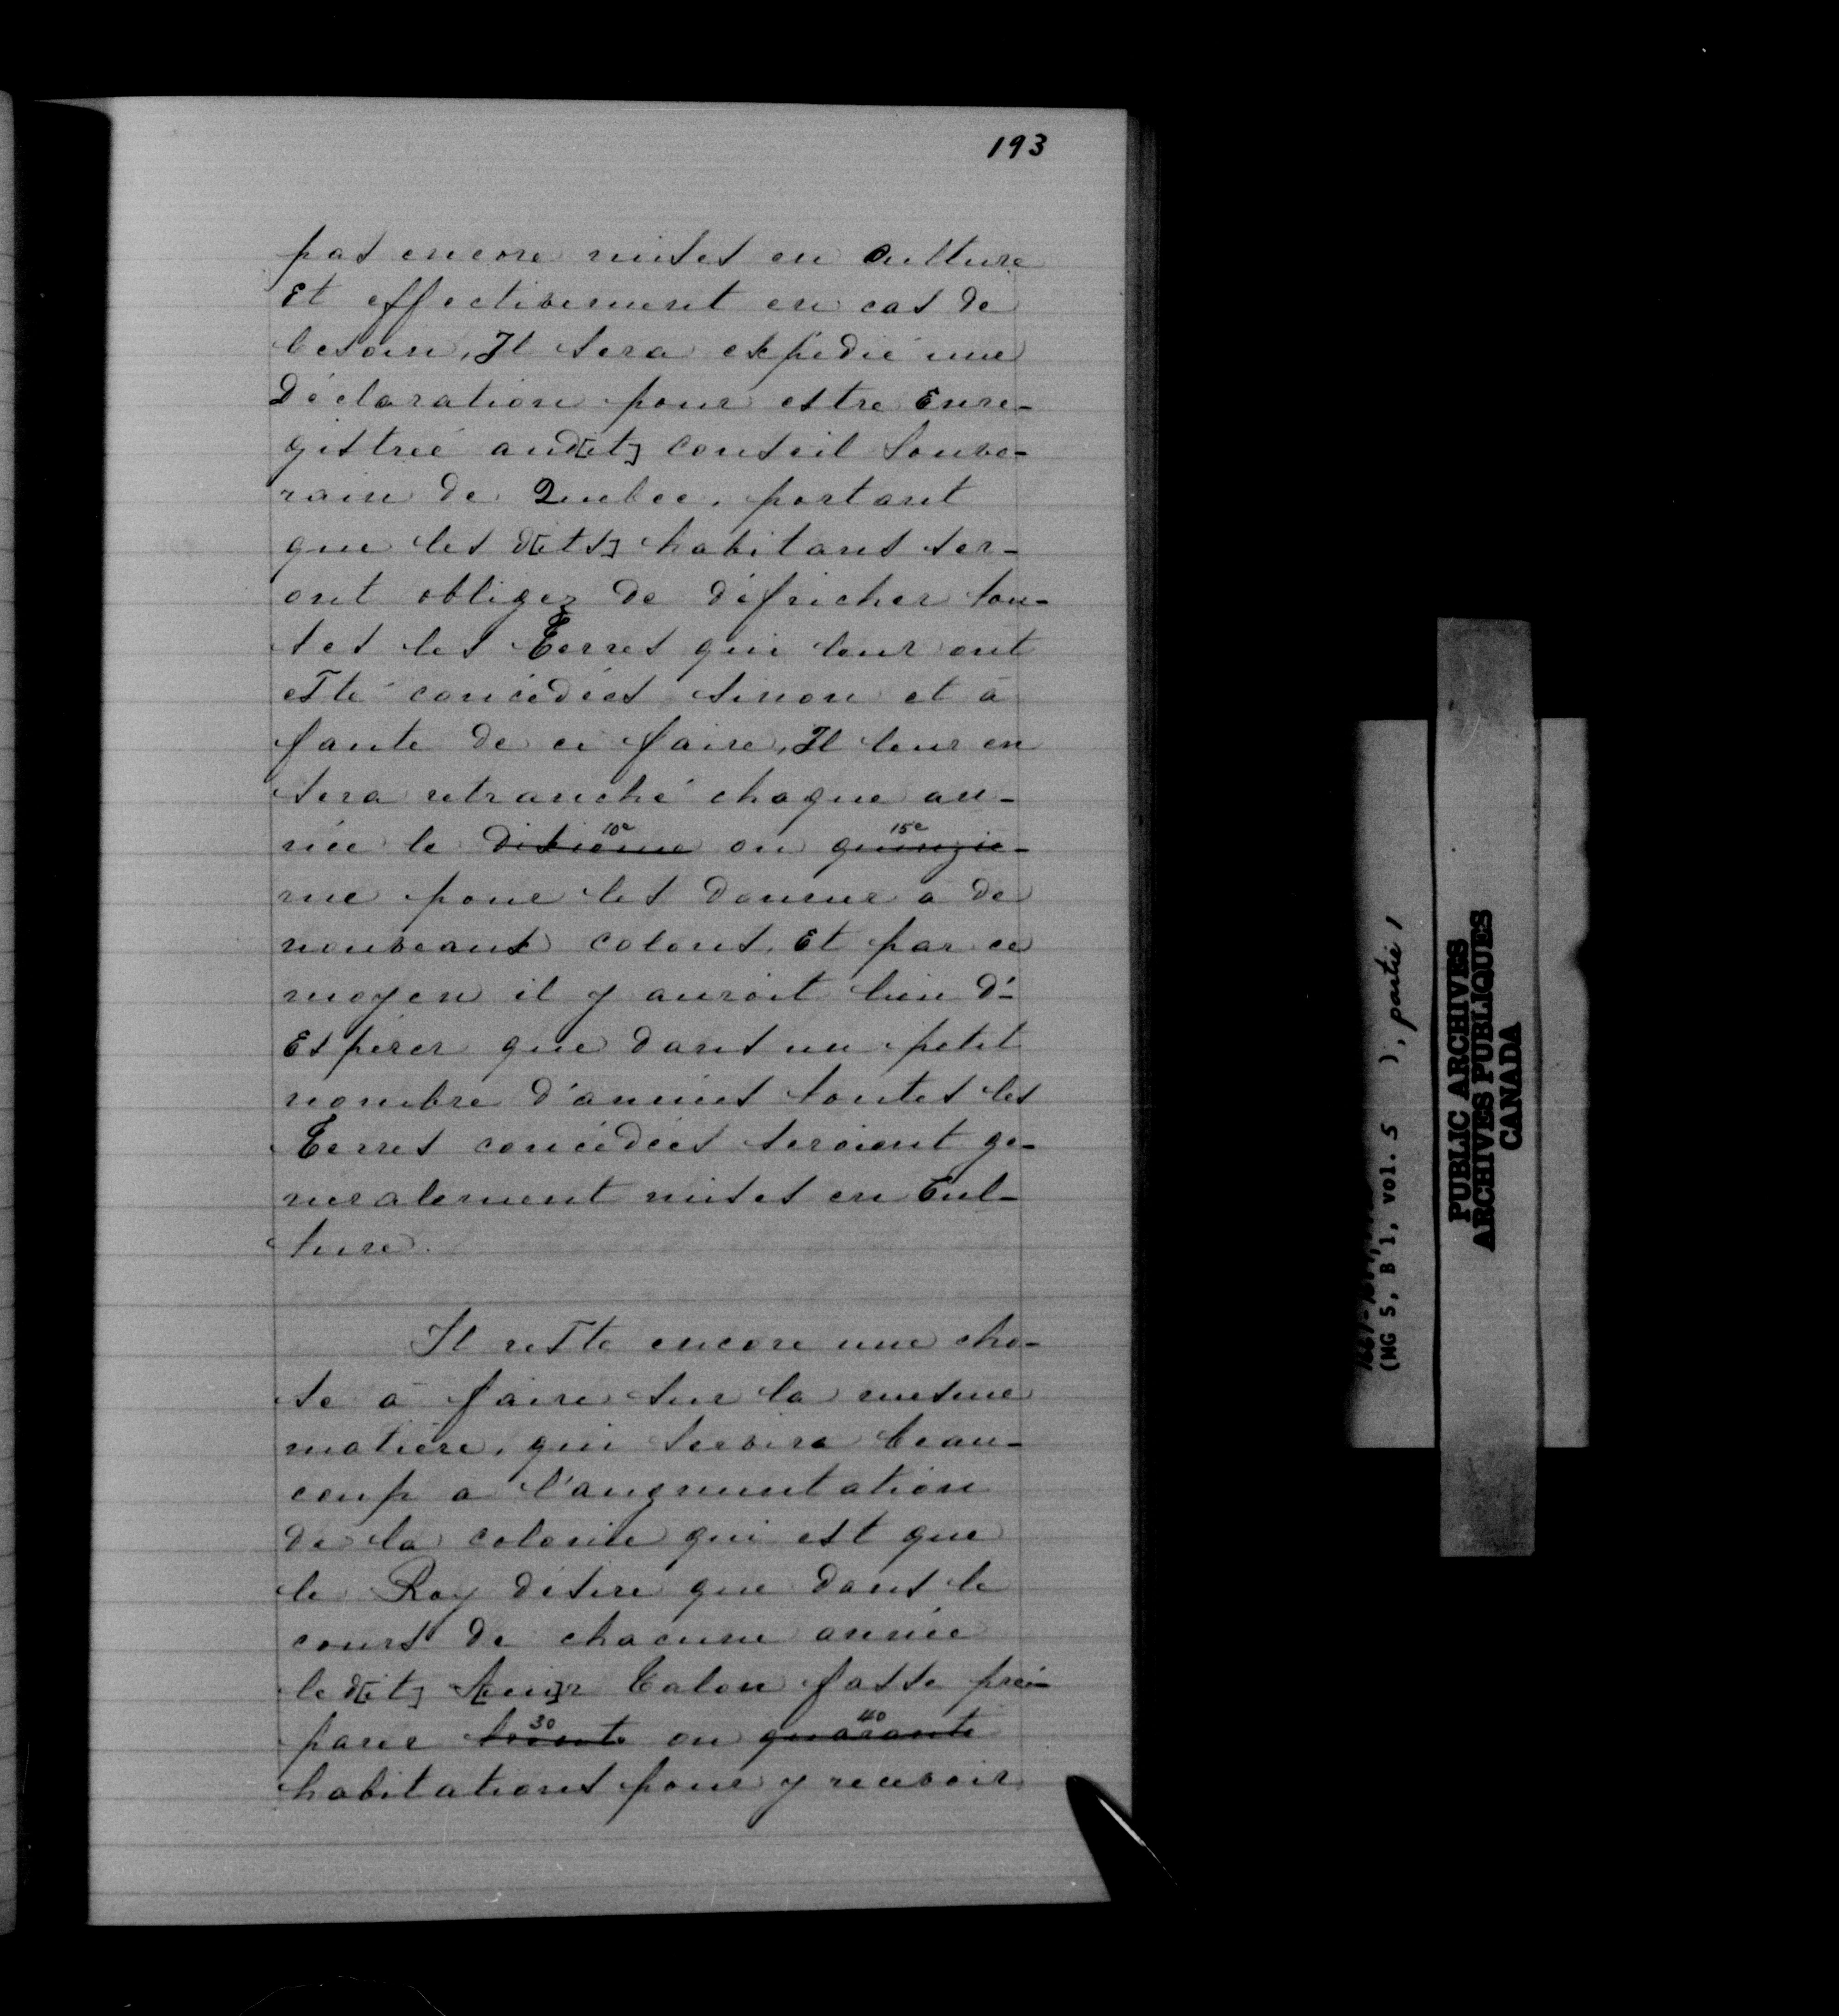 193
pas encore mises en Culture
Et effectivement en cas de
besoin, Il sera expédié une
Déclaration pour estre Enre-
gistrée aud[it] conseil souve-
rain de Quebec, portant
que les d[its] habitans ser-
ont obligez de défricher tou-
tes les Terres qui leur ont
esté concédées sinon et à
faute de ce faire, Il leur en
sera retranché chaque an-
née le ~~dixieme~~ 10e ou ~~quinzie-~~ 15e
me pour les donner a de
nouveaux colons, Et par ce
moyen il y auroit lieu d'-
Espérer que dans un petit
nombre d'années toutes les
Terres concédées seroient ge-
neralement mises en Cul-
ture.
Il reste encore une cho-
se a faire sur la mesme
matiére, qui servira beau-
coup a l'augmentation
de la colonie qui est que
le Roy désire que dans le
cours de chacune année
led[it] S[ieu]r Talon fasse pré-
parer ~~trente~~ 30 ou ~~quarante~~ 40
habitations pour y recevoir
(MG 5, B 1, vol. 5 ), partie 1
PUBLIC ARCHIVES
ARCHIVES PUBLIQUES
CANADA